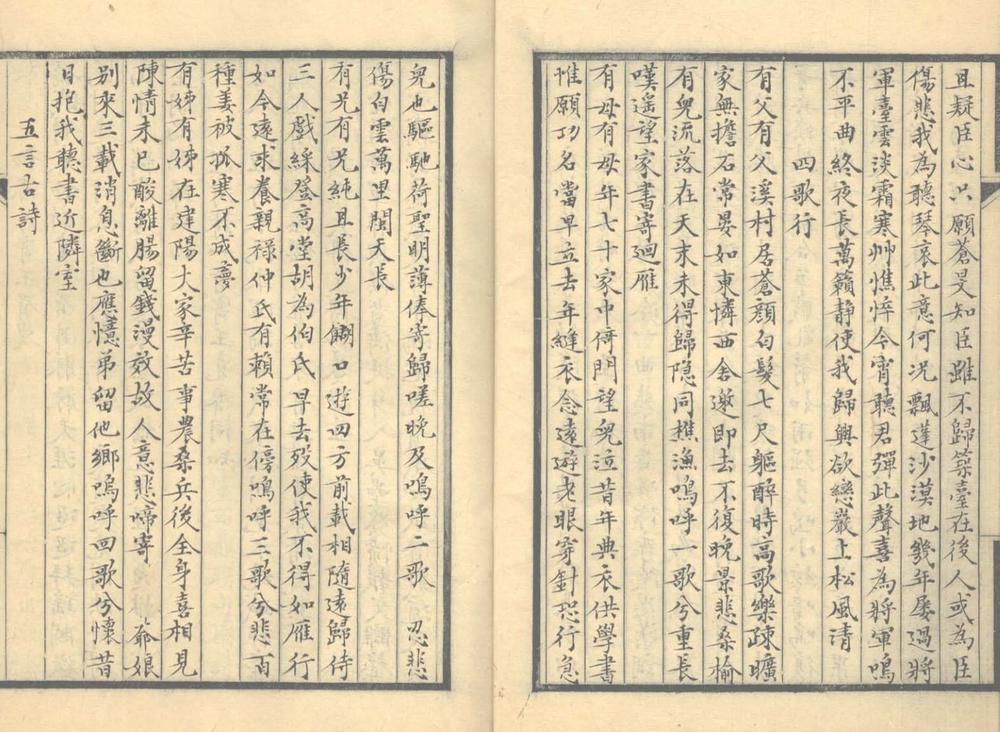 且疑臣心只願蒼旻知臣雖不歸築臺在後人或為臣
傷悲我為聽琴哀此意何況飄蓬沙漠地幾年屡過將
軍臺雲淡霜寒艸憔悴今宵聽君彈此聲喜為將軍鳴
不平曲終夜長萬籟静使我歸興欲戀巖上松風清
四歌行
有父有父溪村居蒼顔白髮七尺軀醉時高歌樂疎曠
家無擔石常晏如東憐西舍邀即去不復晚景悲桑榆
有兒流落在天末未得歸隐同樵漁嗚呼一歌兮重長
嘆遥望家書寄廻雁
有母有母年七十家中倚門望兒泣昔年典衣供學書
惟願功名當早立去年縫衣念遠遊老眼寄針恐行急
兒也驅馳荷聖明薄俸寄歸嗟晚及嗚呼二歌忍悲
傷白雲萬里閩天長
有兄有兄純且長少年餬口遊四方前載相隨遠歸侍
三人戲綵登高堂胡為伯氏早去殁使我不得如雁行
如今遠求養親禄仲氏有賴常在傍嗚呼三歌兮悲一百
種姜被孤寒不成夣
有姊有姊在建陽大家辛苦事農桑兵後全身喜相見
陳情未已酸離腸留錢漫效故人意悲啼寄 爺娘
别來三載消息斷也應憶弟留他鄉嗚呼四歌兮懷昔
日抱我聽書近隣室
五言古詩